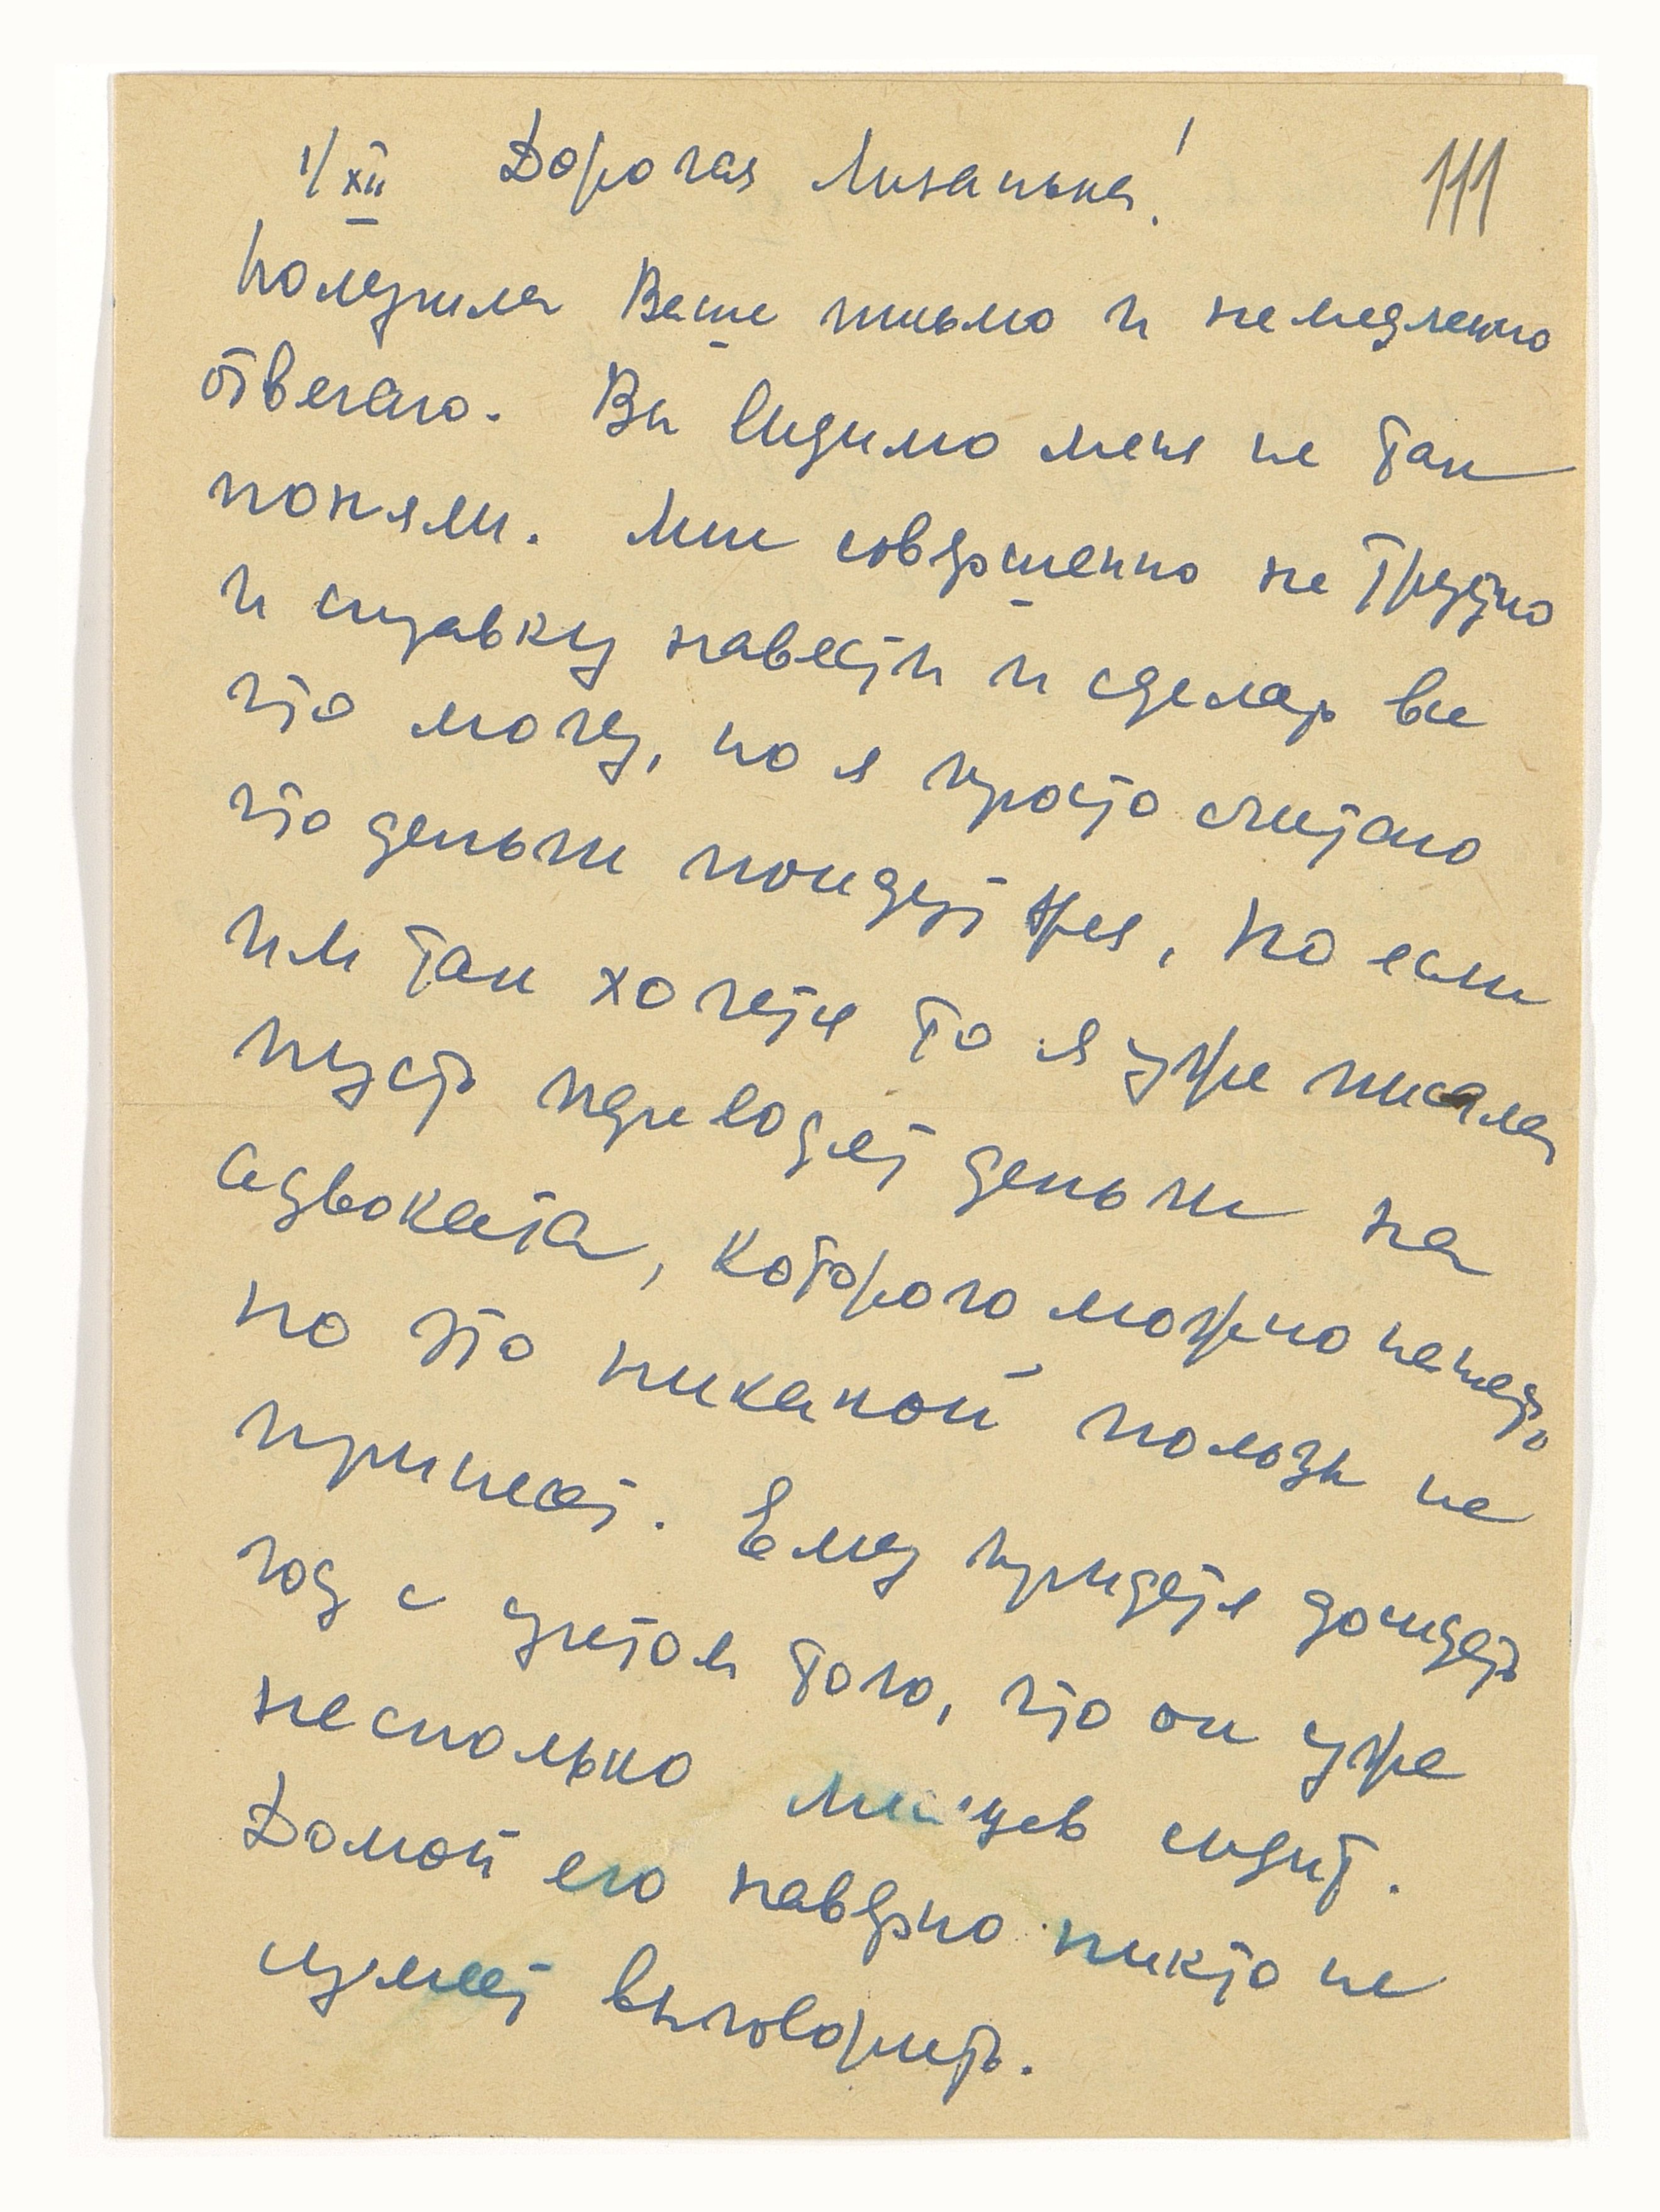 1/XII Дорогая Лизанька!
111
Получила Ваше письмо и немедленно
отвечаю. Вы видимо меня не так
поняли. Мне совершенно не трудно
и справку навести и сделать все
что могу, но я просто считаю
что деньги пойдут зря, но если
им так хочется то я уже писала
пусть переводят деньги на
адвоката, которого можно нанять,
но это никакой пользы не
принесет. Ему придется досидеть
год с учетом того, что он уже
несколько месяцев сидит.
Домой его наверно никто не
сумеет выговорить.